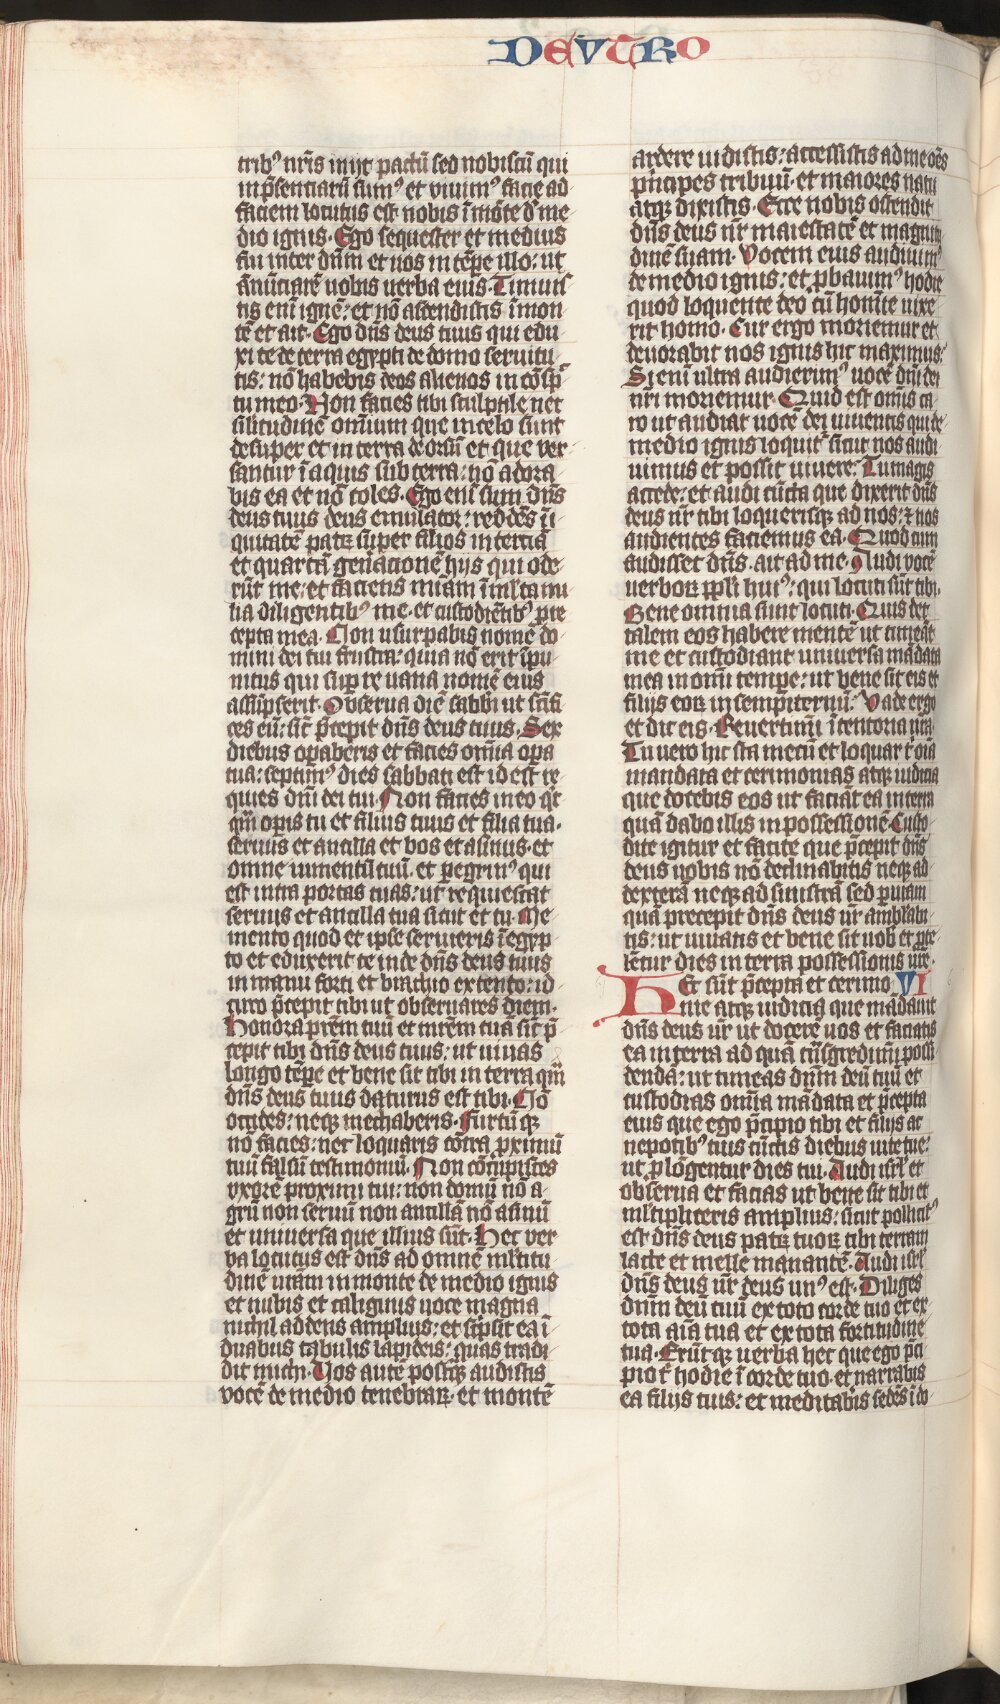 DEVTRO
trib⁹ nr̃is inijt pactũ sed nobiscũ qui
in p̃senciarũ sum⁹ et viuim⁹ facie ad
faciem locutus est nobis ĩ mõte de me
dio ignis. Ego sequester et medius
fui inter dñm et uos in tẽpe illo: ut
ãnũciarẽ uobis uerba eius. Timuis
tis enĩ ignẽ: et nõ ascendistis ĩ mon
tẽ et ait. Ego dñs deus tuus qui edu
xi te de terra egypti de domo seruitu
tis: nõ habebis deos alienos in cõsp̃
tu meo. Non facies tibi sculptile nec
silitudinẽ omnium que in celo sunt
desuper et in terra deorsũ et que ver
santur ĩ aquis sub terra: nõ adora
bis ea et nõ coles. Ego enĩ sum dñs
deus tuus deus emulator: reddẽs ĩi
quitatẽ patꝝ super filios in terciã
et quartã gen̄acionẽ hijs qui ode
rũt me: et faciens mĩam ĩ ml̃ta mi
lia diligentib⁹ me. et custodiẽtib⁹ p̃re
cepta mea. Non usurpabis nomẽ do
mini dei tui frustra: quia nõ erit ĩpu
nitus qui sup re uana nomẽ eius
assũpserit. Obserua diẽ sabbi ut sc̃ifi
ces eũ: sic̃ p̃cepit dñs deus tuus. Sex
diebus opaberis et facies om̃ia opa
tua: septim⁹ dies sabbati est id est re
quies dñi dei tui. Non facies in eo q̃c
q̃m opis tu et filius tuus et filia tua.
seruus et ancilla et bos et asinus. et
omne iumentũ tuũ. et p̱egrin⁹ qui
est intra portas tuas: ut requiescat
seruus et ancilla tua sicut et tu. Me
mento quod et ipse seruieris ĩ egyp
to et eduxerit te inde dñs deus tuus
in manu forti et brachio extento: id
circo p̃cepit tibi ut obseruares diem.
Honora prẽm tuũ et mrẽm tuã sic̃ p̃
cepit tibi dñs deus tuus: ut uiuas
longo tẽpe et bene sit tibi in terra q̃m
dñs deus tuus daturus est tibi. Nõ
occides: neqꝫ mechaberis. Furtũqꝫ
nõ facies: nec loquaris cõtra pximũ
tuũ falsũ testimoniũ. Non cõcupisces
vxorẽ proximi tui: non domũ nõ a
grũ non seruũ non ancillã nõ asinũ
et uniuersa que illius sũt. Hec ver
ba locutus est dñs ad omnẽ ml̃titu
dinẽ vrãm in monte de medio ignis
et nubis et caliginis uoce magna
nichil addens amplius: et sc̃psit ea ĩ
duabus tabulis lapideis: quas tradi
dit michi. Vos autẽ postqꝫ audistis
vocẽ de medio tenebrarꝝ. et montẽ
ardere uidistis: accessistis ad me oẽs
p̃ncipes tribuũ. et maiores natu
atqꝫ dixistis. Ecce nobis ostendit
dñs deus nr̃ maiestatẽ et magnitu
dinẽ suam. Vocem eius audiuim⁹
de medio ignis: et pbauim⁹ hodie
quod loquente deo cũ homĩe uixe
rit homo. Cur ergo moriemur et
deuorabit nos ignis hic maximus:
Si enĩ ultra audierim⁹ uocẽ dñi dei
nri moriemur. Quid est om̃is ca
ro ut audiat uocẽ dei uiuentis qui de
medio ignis loquit̃ sicut nos audi
uimus et possit uiuere: Tu magis
accede: et audi cũcta que dixerit dñs
deus nr̃ tibi loquerisqꝫ ad nos: ⁊ nos
audientes faciemus ea. Quod cum
audisset dñs. ait ad me. Audi vocẽ
uerborꝝ ppl̃i hui⁹: qui locuti sũt tibi.
Bene omnia sunt locuti. Quis det
talem eos habere mentẽ ut timeãt
me et custodiant uniuersa mãdata
mea in omĩ tempe: ut bene sit eis et
filijs eorꝝ in sempiternũ: Vade ergo
et dic eis. Reuertimĩ ĩ tentoria ur̃a.
Tu uero hic sta mecũ et loquar t̃ oĩa
mandata et cerimonias atqꝫ iudicia
que docebis eos ut faciãt ea in terra
quã dabo illis in possessionẽ. Custo
dite igitur et facite que p̃cepit dñs
deus uobis nõ declinabitis neqꝫ ad
dexterã neqꝫ ad sinistrã sed p uiam
quã precepit dñs deus ur̃ ambl̃abi
tis: ut uiuatis et bene sit uob̃ et p̃te
lẽtur dies in terra possessionis ur̃e.
HEc sũt p̃cepta et cerimo VI
nie atqꝫ iudicia que mãdauit
dñs deus ur̃ ut docerẽ uos et faciatis
ea in terra ad quã tñsgredimĩ possi
dendã: ut timeas dñm deũ tuũ et
custodias om̃ia mãdata et p̃cepta
eius que ego p̃cipio tibi et filijs ac
nepotib⁹ tuis cũctis diebus uite tue:
ut plõgentur dies tui. Audi isrl̃ et
obserua et facias ut bene sit tibi et
ml̃tipliceris amplius: sicut pollicit⁹
est dñs deus patꝝ tuorꝝ tibi terram
lacte et melle manantẽ. Audi isrl̃
dñs deus ur̃ deus un⁹ est. Diliges
dñm deũ tuũ ex toto corde tuo et ex
tota aĩa tua et ex tota fortitudine
tua. Erũtqꝫ uerba hec que ego p̃ci
pio t̃ hodie ĩ corde tuo. et narrabis
ea filijs tuis: et meditabis sedẽs ĩ do